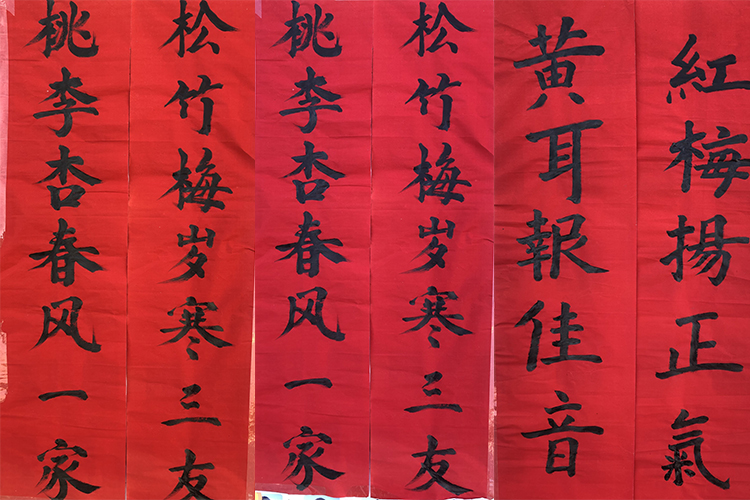 紅梅揚正氣
黃耳報佳音
松竹梅岁寒三友
桃李杏春风一家
松竹梅岁寒三友
桃李杏春风一家